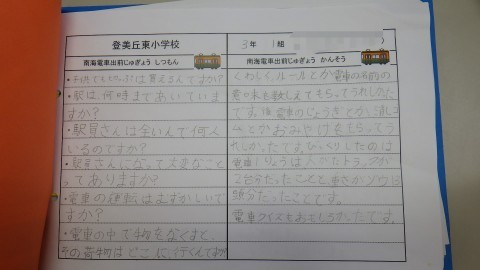 登美丘東小学校
3年 1組
南海電車出前じゅぎょう しつもん
南海電車出前じゅぎょう かんそう
は買えるんですか?
・駅は、何時まであいています
か?
・駅員さんは全いんで何人
いるのですか?
・駅員さんになって大変なこと
ってありますか?
・電車の運転はむずかしいで
すか?
・電車の中で物をなくすと、
その荷物はどこに、行くんですか
くわしく、ルールとか電車の名前の
意味を教えてもらってうれしかった
です。電車のじょうぎとか、消しゴ
ムとかおみやげをもらってう
れしかったです。びっくりしたのは
電車1りょうは人がたトラックが
2台分だったことと重さがゾウ
頭分だったことです。
電車クイズもおもしろかったです。